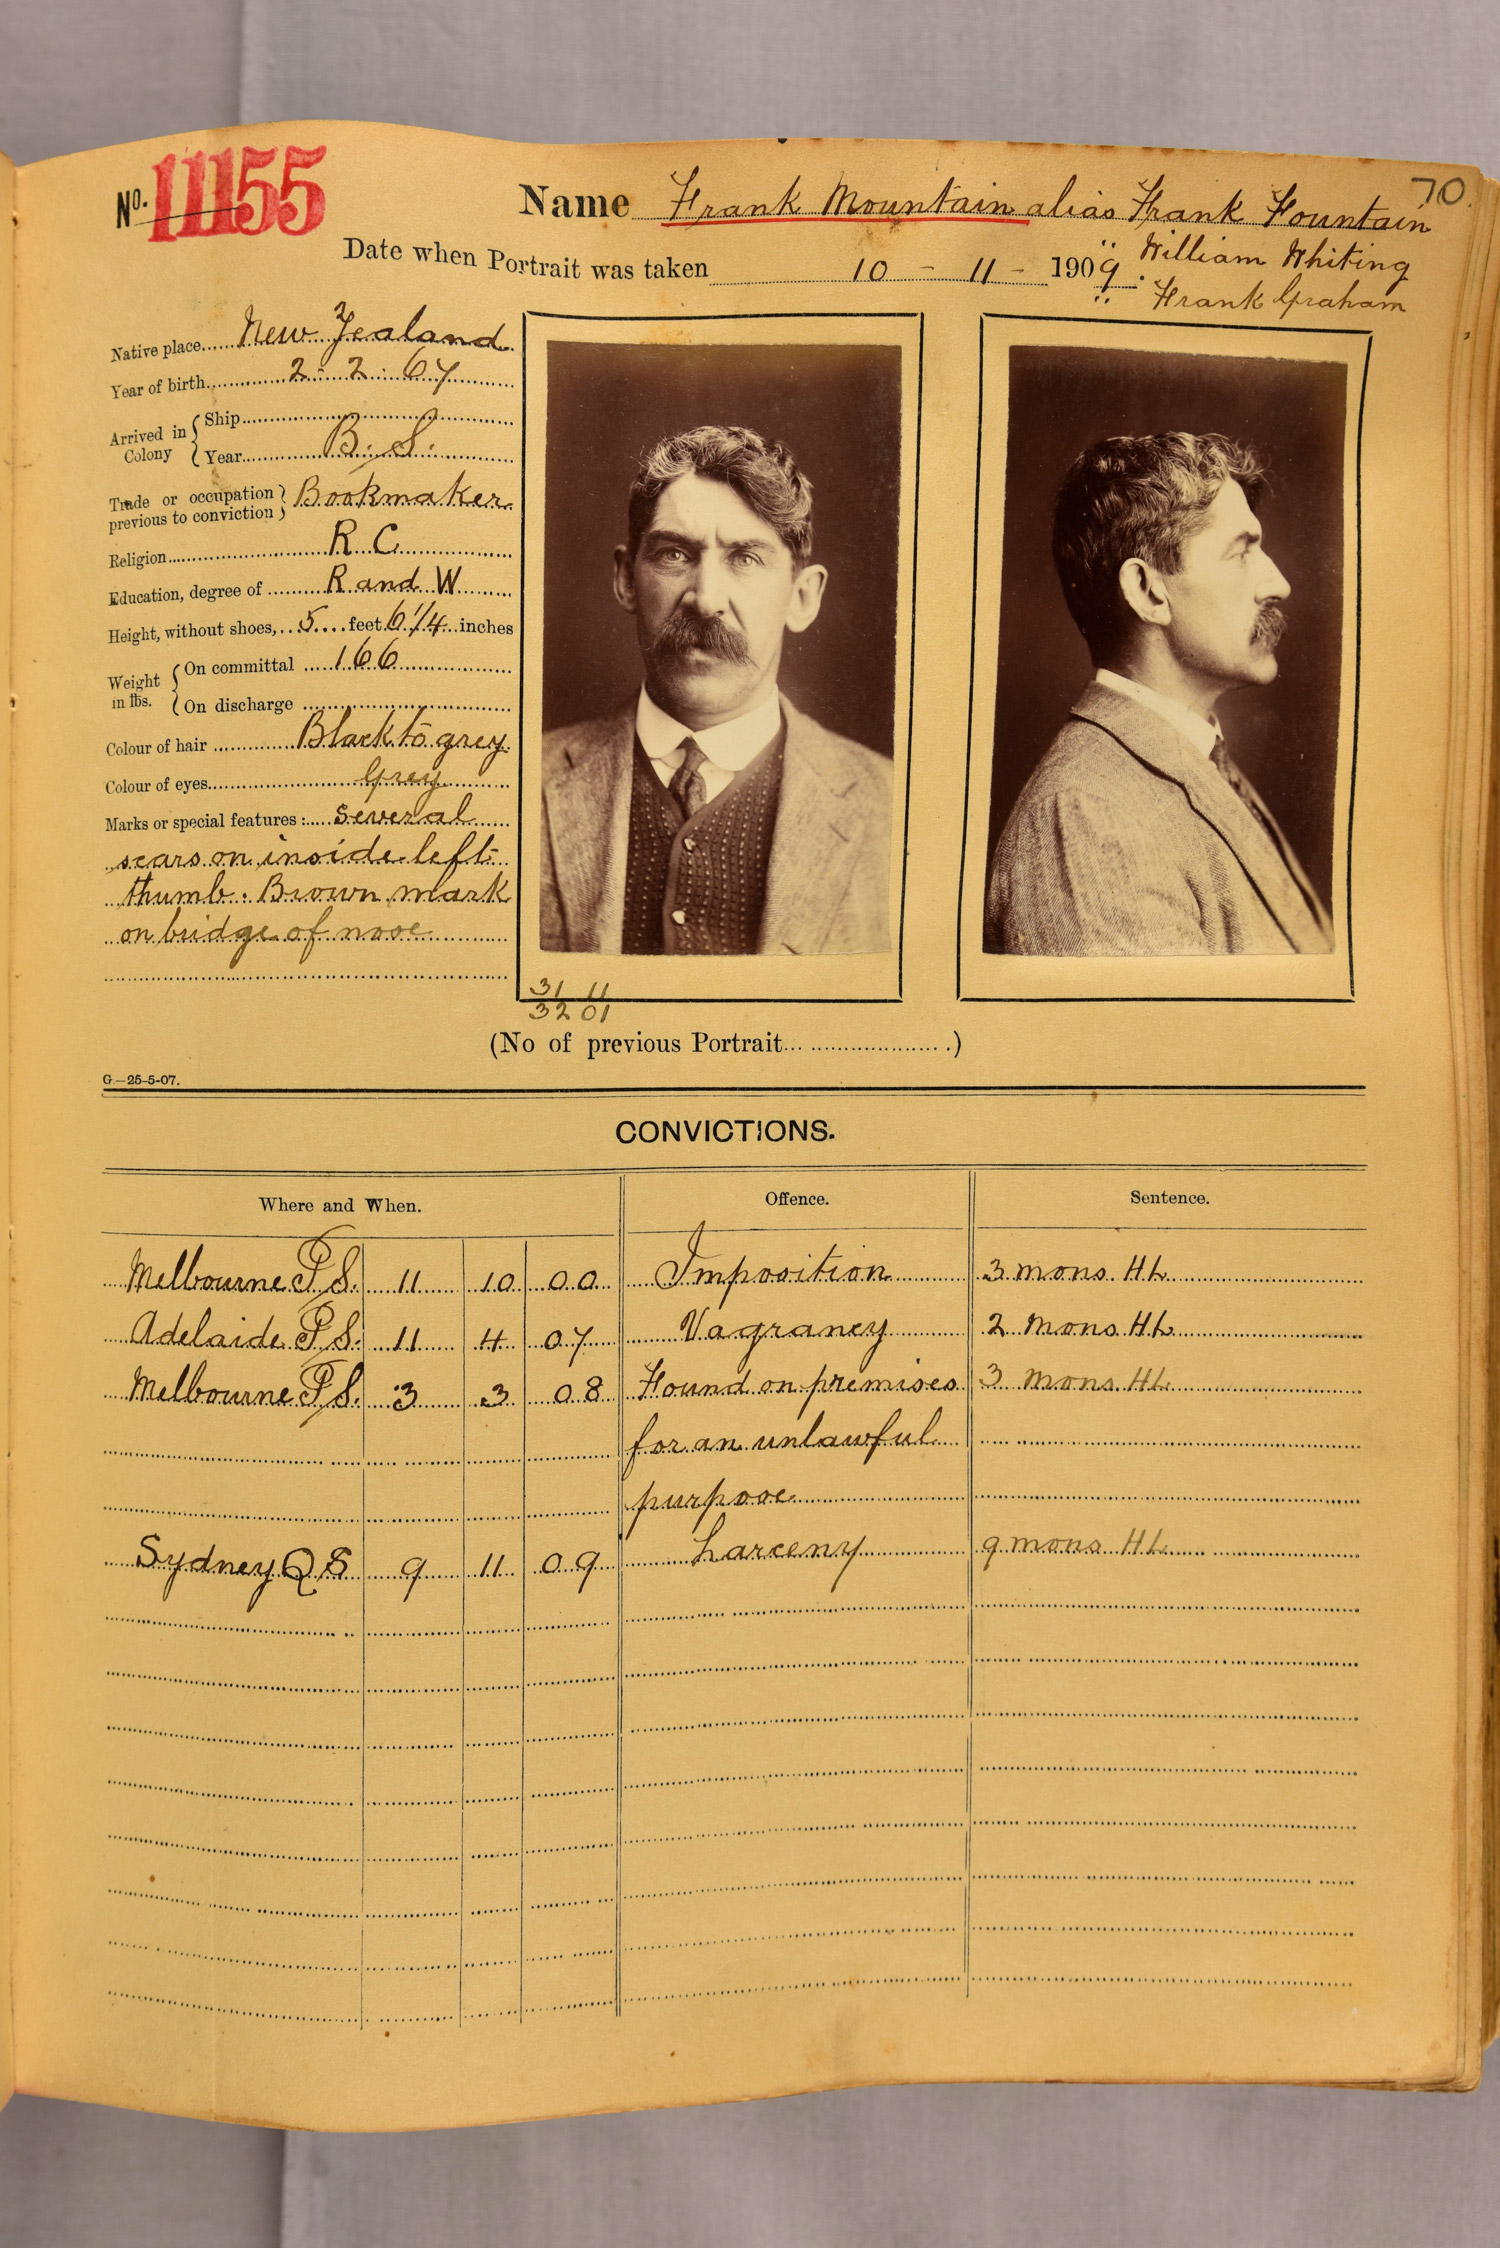 70
No. 11155
Name Frank Mountain alias Frank Fountain
Date when Portrait was taken 10 - 11 - 1909. " William Whiting
" Frank Graham
Native place New Zealand
Year of birth 2 - 2 - 67
Arrived in Colony { Ship
Year B. S.
Trade or occupation previous to conviction } Bookmaker
Religion R C
Education, degree of R and W
Height, without shoes, 5 feet 6 1/4 inches
Weight in lbs. { On committal 166
On discharge
Colour of hair Black to grey
Colour of eyes Grey
Marks or special features: several
scars on inside left
thumb. Brown mark
on bridge of nose
31 11
32 01
(No of previous Portrait )
G—25-5-07.
CONVICTIONS.
Where and When. Offence. Sentence.
Melbourne P.S. 11 10 00 Imposition 3 mons HL
Adelaide P.S. 11 4 07 Vagrancy 2 mons HL
Melbourne P.S. 3 3 08 Found on premises 3 mons HL
for an unlawful
purpose
Sydney Q S 9 11 09 Larceny 9 mons HL